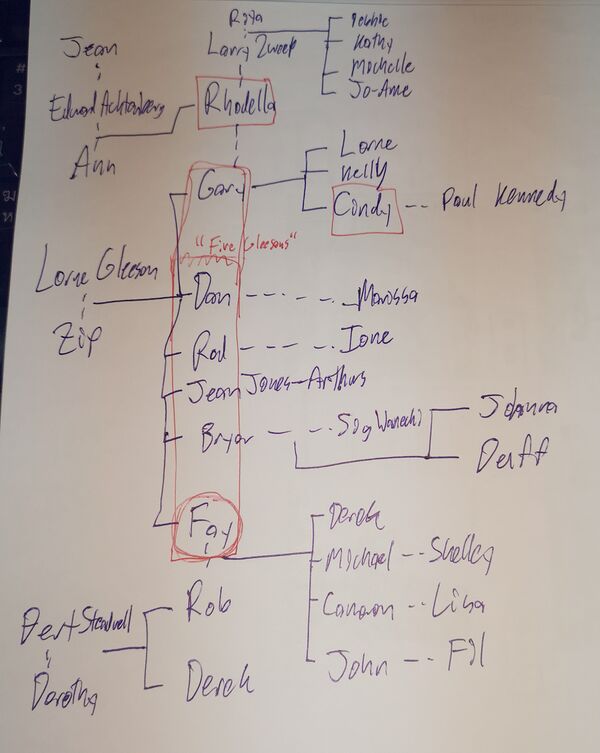 Jean
Roya
Larry Zweek
Debbie
Kathy
Michelle
Jo-Anne
#
3
Edward Achtenberg
Rhodella
Ann
Gary
Lorne
Kelly
Cindy -- Paul Kennedy
"Five Gleesons"
Lorne Gleeson
Zip
Dan - - - - Marissa
Rod - - - - Ione
Jean Jones-Arthurs
Bryar - - - Sig Wanechi
Johanna
Fay
Derek
Michael -- Shelley
Canaan -- Lisa
John -- Fil
Bert Steadwell
Dorothy
Rob
Derek